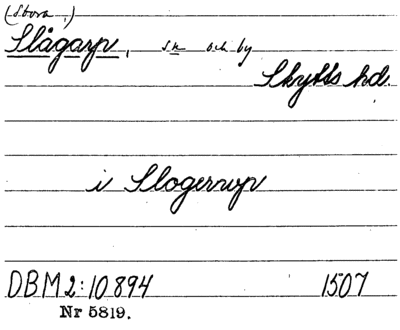 (Stora,)
Slågarp, sn och by
Skytts hd.
i Slogerup
DBM 2:10894 1507
Nr 5819.